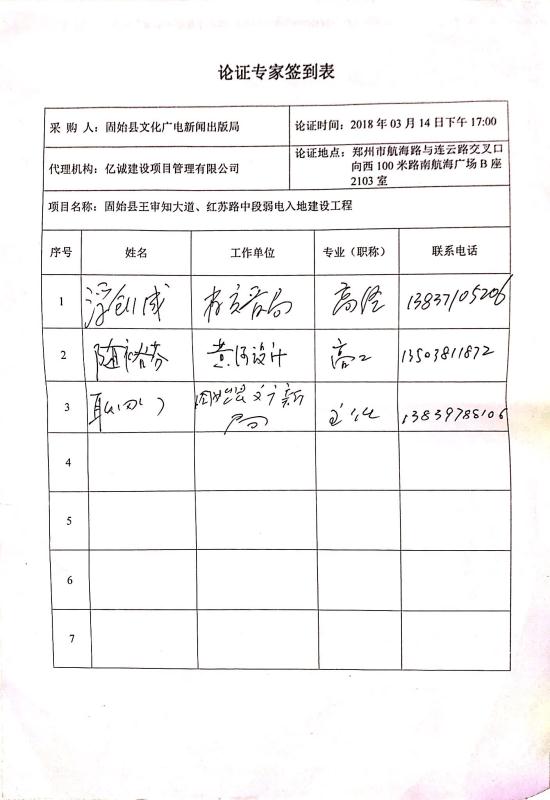 论证专家签到表
采 购 人：固始县文化广电新闻出版局
论证时间：2018 年 03 月 14 日下午 17:00
代理机构：亿诚建设项目管理有限公司
论证地点：郑州市航海路与连云路交叉口
向西 100 米路南航海广场 B 座
2103 室
项目名称：固始县王审知大道、红苏路中段弱电入地建设工程
序号 姓名 工作单位 专业（职称） 联系电话
1 高经 13837105206
2 黄河设计 高工 13503811872
3 13839788106
4
5
6
7